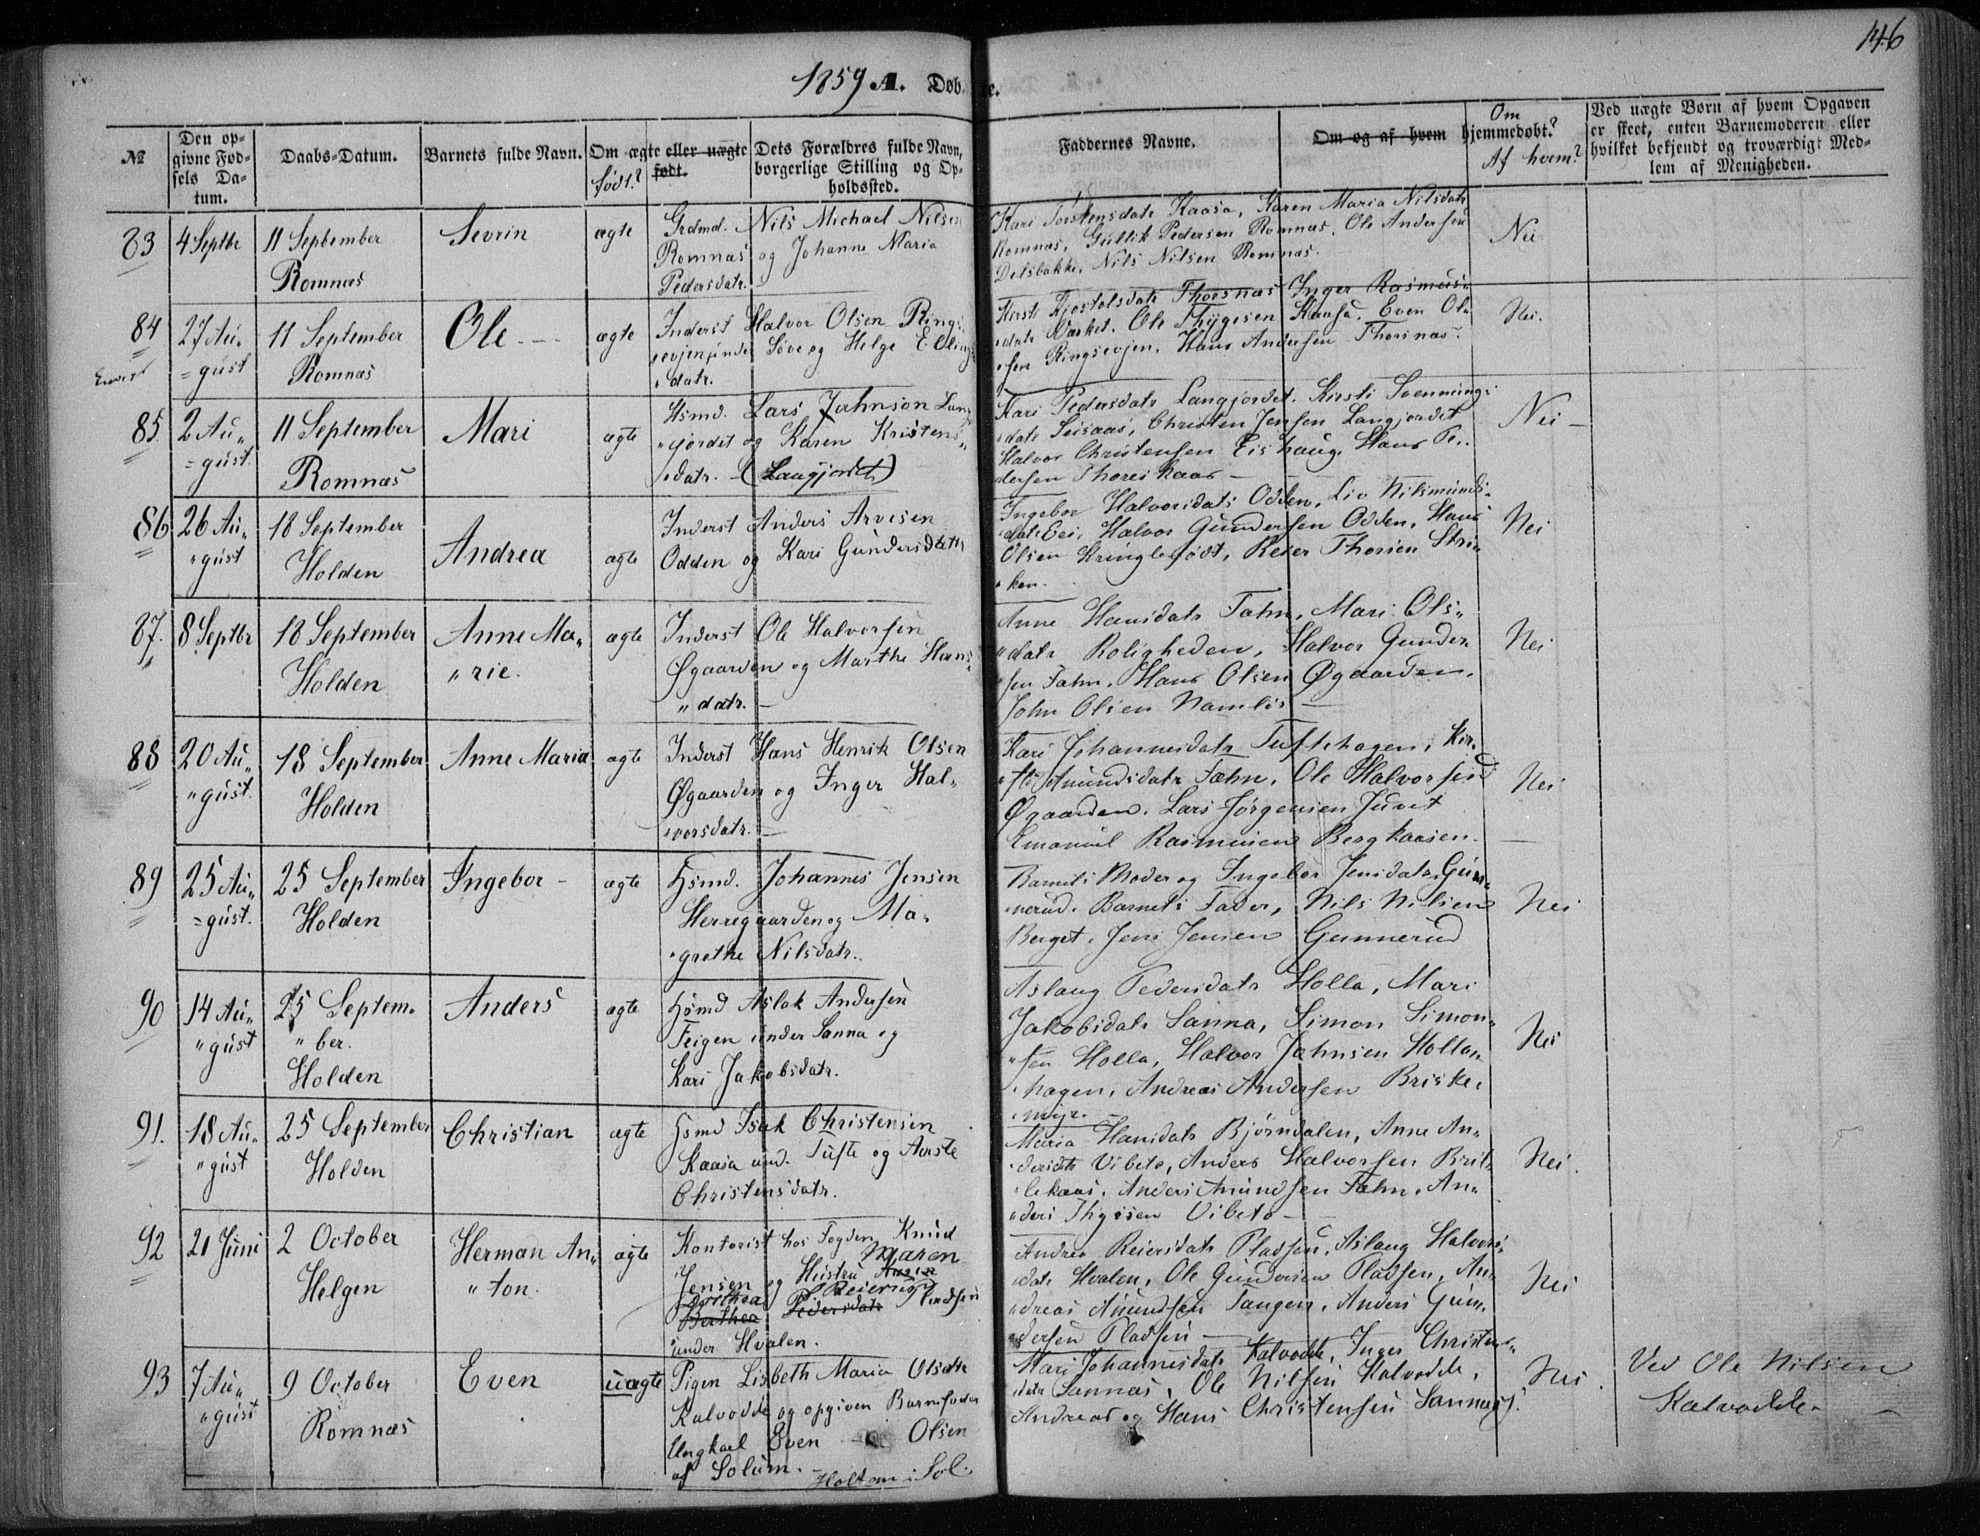 146
1859 A. Døbte.
№
Den op-
givne Fød-
sels Da-
tum.
Daabs-Datum.
Barnets fulde Navn.
Om ægte eller uægte
født.
født?
Dets Forældres fulde Navn,
borgerlige Stilling og Op-
holdssted.
Faddernes Navne.
Om og af hvem hjemmedøbt?
Om
Af hvem?
Ved uægte Børn af hvem Opgaven
er skeet, enten Barnemoderen eller
hvilket bekjendt og troværdigt Med-
lem af Menigheden.
83
4 Septbr
11 September
Romnæs
Sevrin
ægte
Grdmd. Nils Michael Nilsen
Romnæs og Johanne Maria
Pedersdatr. —
Kari Torstensdatr Kaasa, Karen Maria Nilsdatr
Romnæs, Gullik Pedersen Romnæs, Ole Andersen
Delsbakke, Nils Nilsen Romnæs.
Nei
84
27 Au„
=gust
11 September
Romnæs
Ole. —
ægte
Inderst Halvor Olsen Rings
evjen unde Søve og Helge Elling
datr.
Kirsti Kjostolsdatr Thorsnæs Inger Rasmus-
datr Værket, Ole Thygesen Kaasa, Even Ol-
sen Ringsevjen, Hans Andersen Thorsnæs.
Nei.
85
2 Au„
=gust.
11 September
Romnæs
Mari
ægte
Hsmd. Lars Johnson Lang
gjordet og Karen Kristens„
datr. — (Langjordet)
Kari Pedersdatr Langjordet, Kirsti Svennings
datr Seisaas, Christen Jensen Langjordet
Halvor Christensen Eishaug, Hans Pe..
dersen Thoreskaas —
Nei —
86
26 Au„
„gust
18 September
Holden
Andrea
ægte
Inderst Anders Arvesen
Odden og Kari Gundersdatr
Ingebor Halvorsdatr Odden, Liv Nilsmunds-
datr Eei, Halvor Gundersen Odden, Hans
Olsen Kringlefodt, Reier Thorsen Stri-
ken.
Nei
87.
8 Septbr
18 September
Holden
Anne Ma„
„rie.
ægte
Inderst Ole Halvorsen
Øgaarden og Marthe Hans„
„datr. —
Anne Hansdatr Fahn, Mari Ols„
„datr Roligheden, Halvor Gunder
sen Fahn, Hans Olsen Øgaarden,
John Olsen Namløs —
Nei
88
20 Au„
„gust.
18 September
Holden
Anne Maria
ægte
Inderst Hans Henrik Olsen
Øgaarden og Inger Hal„
vorsdatr. —
Kari Johannesdatr Tuftehagen, Kir„
sti Amundsdatr Fahn, Ole Halvorsen
Øgaarden, Lars Jørgensen Juvet
Emanuel Rasmussen Bergkaasen.
Nei
89
25 Au„
=gust.
25 September
Holden
Ingebor —
ægte
Hsmd. Johannes Jensen
Herregaarden og Ma„
grethe Nilsdatr.
Barnets Moder og Ingebor Jensdatr Gun„
nerud, Barnets Fader, Nils Nilsen
Berget, Jens Jensen Gunnerud
Nei
90
14 Au„
„gust
25 Septem„
„ber.
Holden
Anders
ægte
Hsmd Aslak Andersen
Feigen under Sanna og
Kari Jakobsdatr.
Aslaug Pedersdatr Holla, Mari
Jakobsdatr Sanna, Simon Simon„
„sen Holla, Halvor Johnsen Holla„
hagen, Andreas Andersen Briske„
myr.
Nei
91.
18 Au„
„gust
25 September
Holden
Christian
ægte
Hsmd Isak Christensen
Kaasa und. Tufte og Aarste
Christensdatr.
Maria Hansdatr Bjørndalen, Anne An„
dersdatr Vibeto, Anders Halvorsen Brit„
lekaas, Anders Amundsen Fahn, An„
ders Thygesen Vibeto —
Nei.
92
21 Juni
2 October
Helgen
Herman An„
„ton.
ægte
Kontorist hos Fogden Knud
Jensen og Hustru Karen Maren
Dorthea Berthea Pedersdatr Reiersdtr Pladsen
under Hvalen.
Andrea Reiersdatr Pladsen, Aslaug Halvors„
datr Hvalen, Ole Gundersen Pladsen, An„
dreas Amundsen Tangen, Anders Gun„
dersen Pladsen —
Nei
93
7 Au„
„gust
9 October
Romnæs
Even
uægte
Pigen Lisbeth Maria Olsdtr
Kalvodde og opgiven Barnefader
Ungkarl Even — Olsen
af Solum. — Holtane i Sol.
Mari Johannesdatr Kalvodde, Inger Christens„
datr Sannæs, Ole Nilsen Kalvodde,
Andreas og Hans Christensen Sannæs.
Nei.
Ved Ole Nilsen
Kalvodde. —